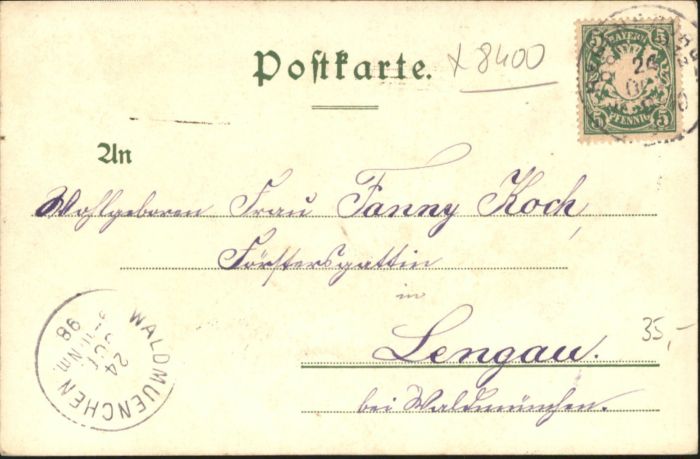 Postkarte.
x 8400
5 BAYERN 5
5 PFENNIG 5
26
An
Wohlgeboren Frau Fanny Koch,
Förstersgattin
in
35,-
Lengau.
bei Waldmünchen.
WALDMUENCHEN
24
OCT
98
Nm.